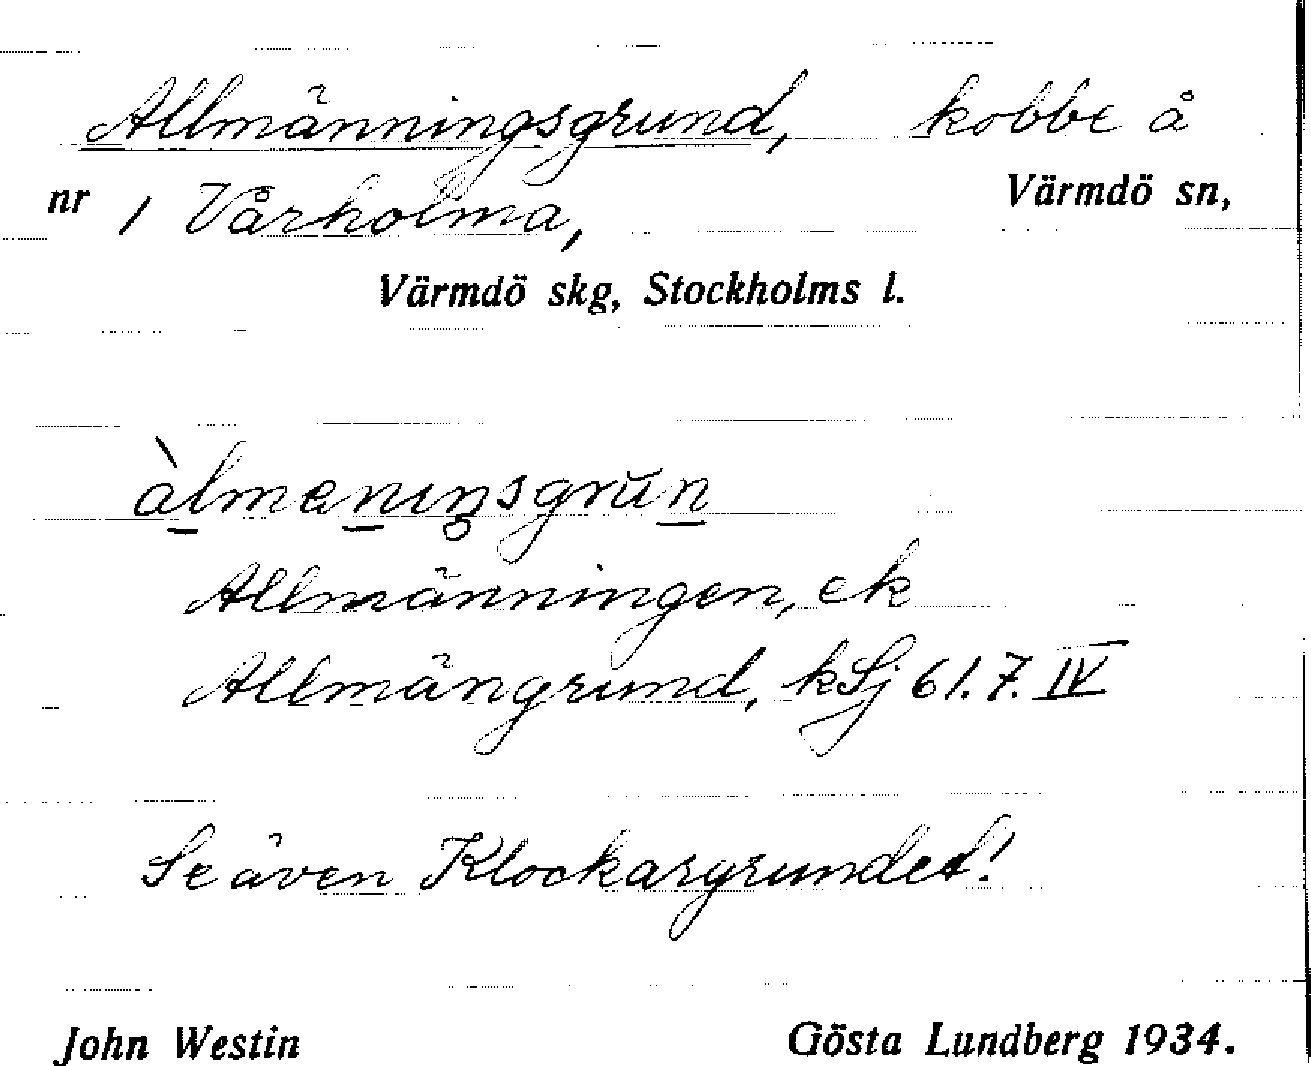 Allmänningsgrund, kobbe å
nr 1 Vårholma, Värmdö sn,
Värmdö skg, Stockholms l.
àlmenıŋsgrŭn
Allmänningen, ek
Allmängrund, kSj 61.7.IV
Se även Klockargrundet!
John Westin Gösta Lundberg 1934.